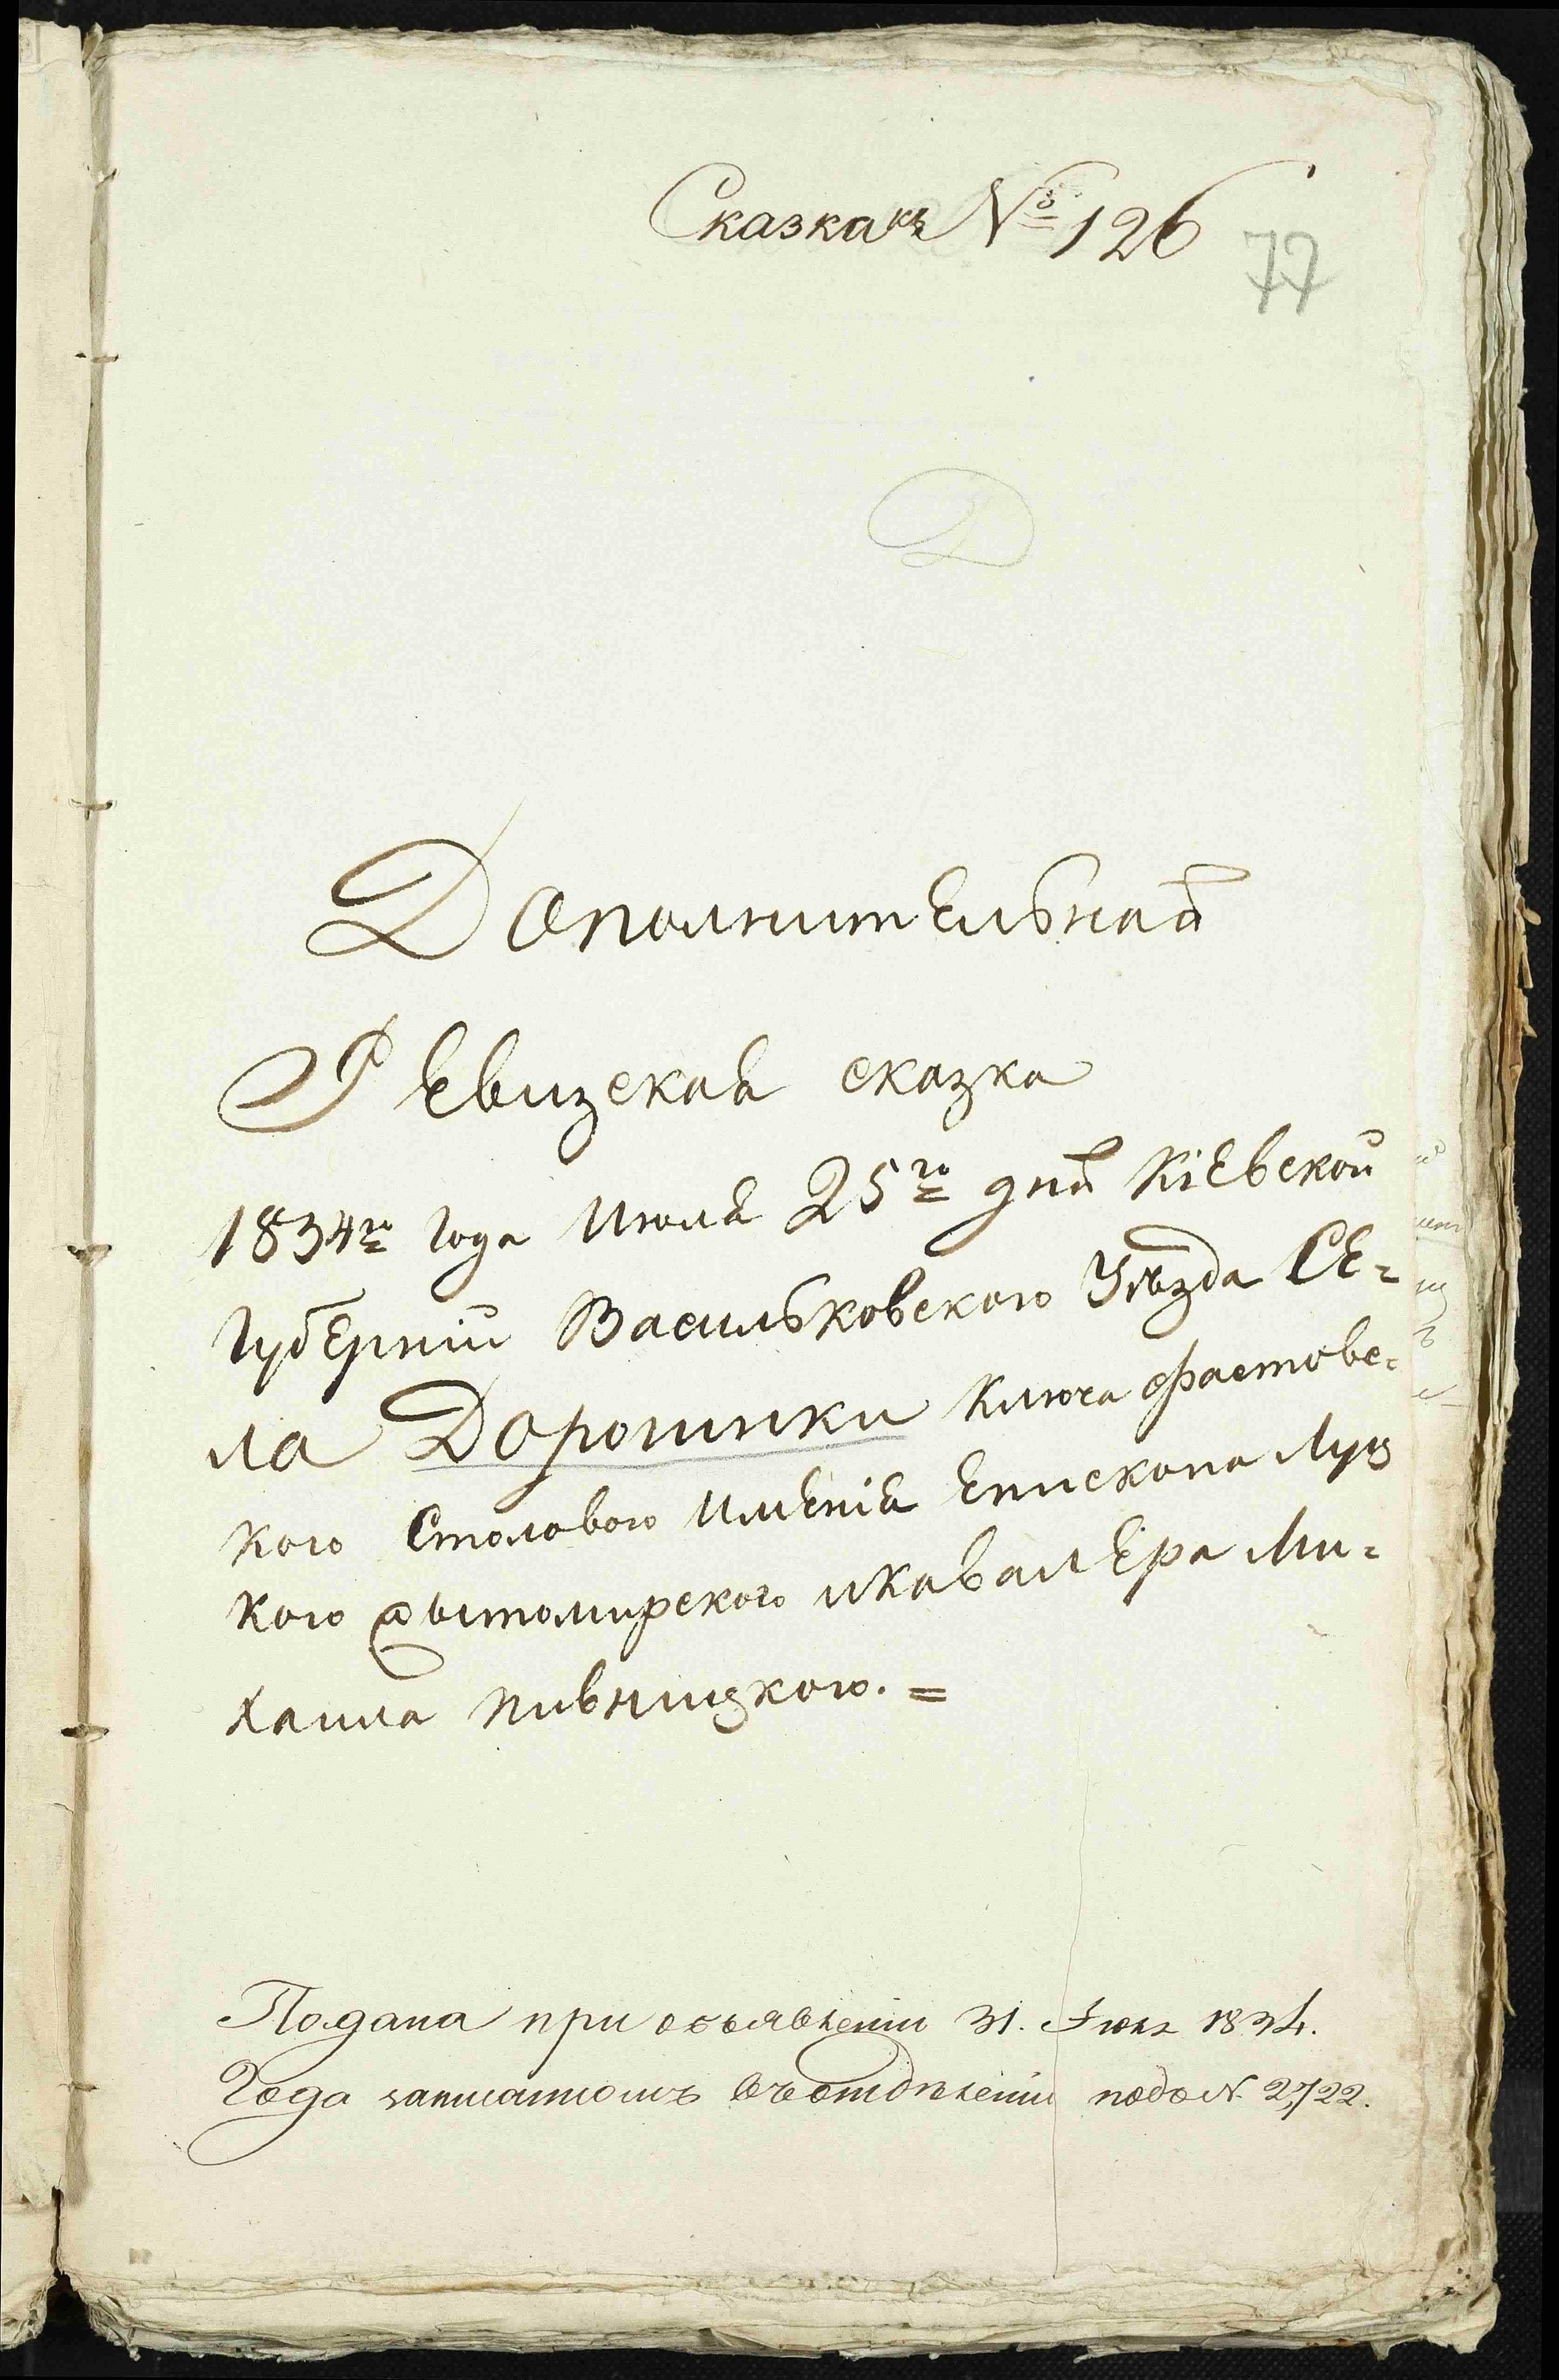 Сказка къ № 126
77
Д
Дополнительная
Ревизская сказка
1834го Года Июля 25го дня Кіевской
Губерніи Васильковского Уѣзда Се=
ла Дорошики Ключа фастовс=
кого Столового Имѣнія Епископа Луц
кого Житомирского и Кавалера Ми=
хаила Пивницкого. =
Подана при объявленіи 31. Іюля 1834.
Года записанномъ въ отдѣленіи подъ N. 2,722.